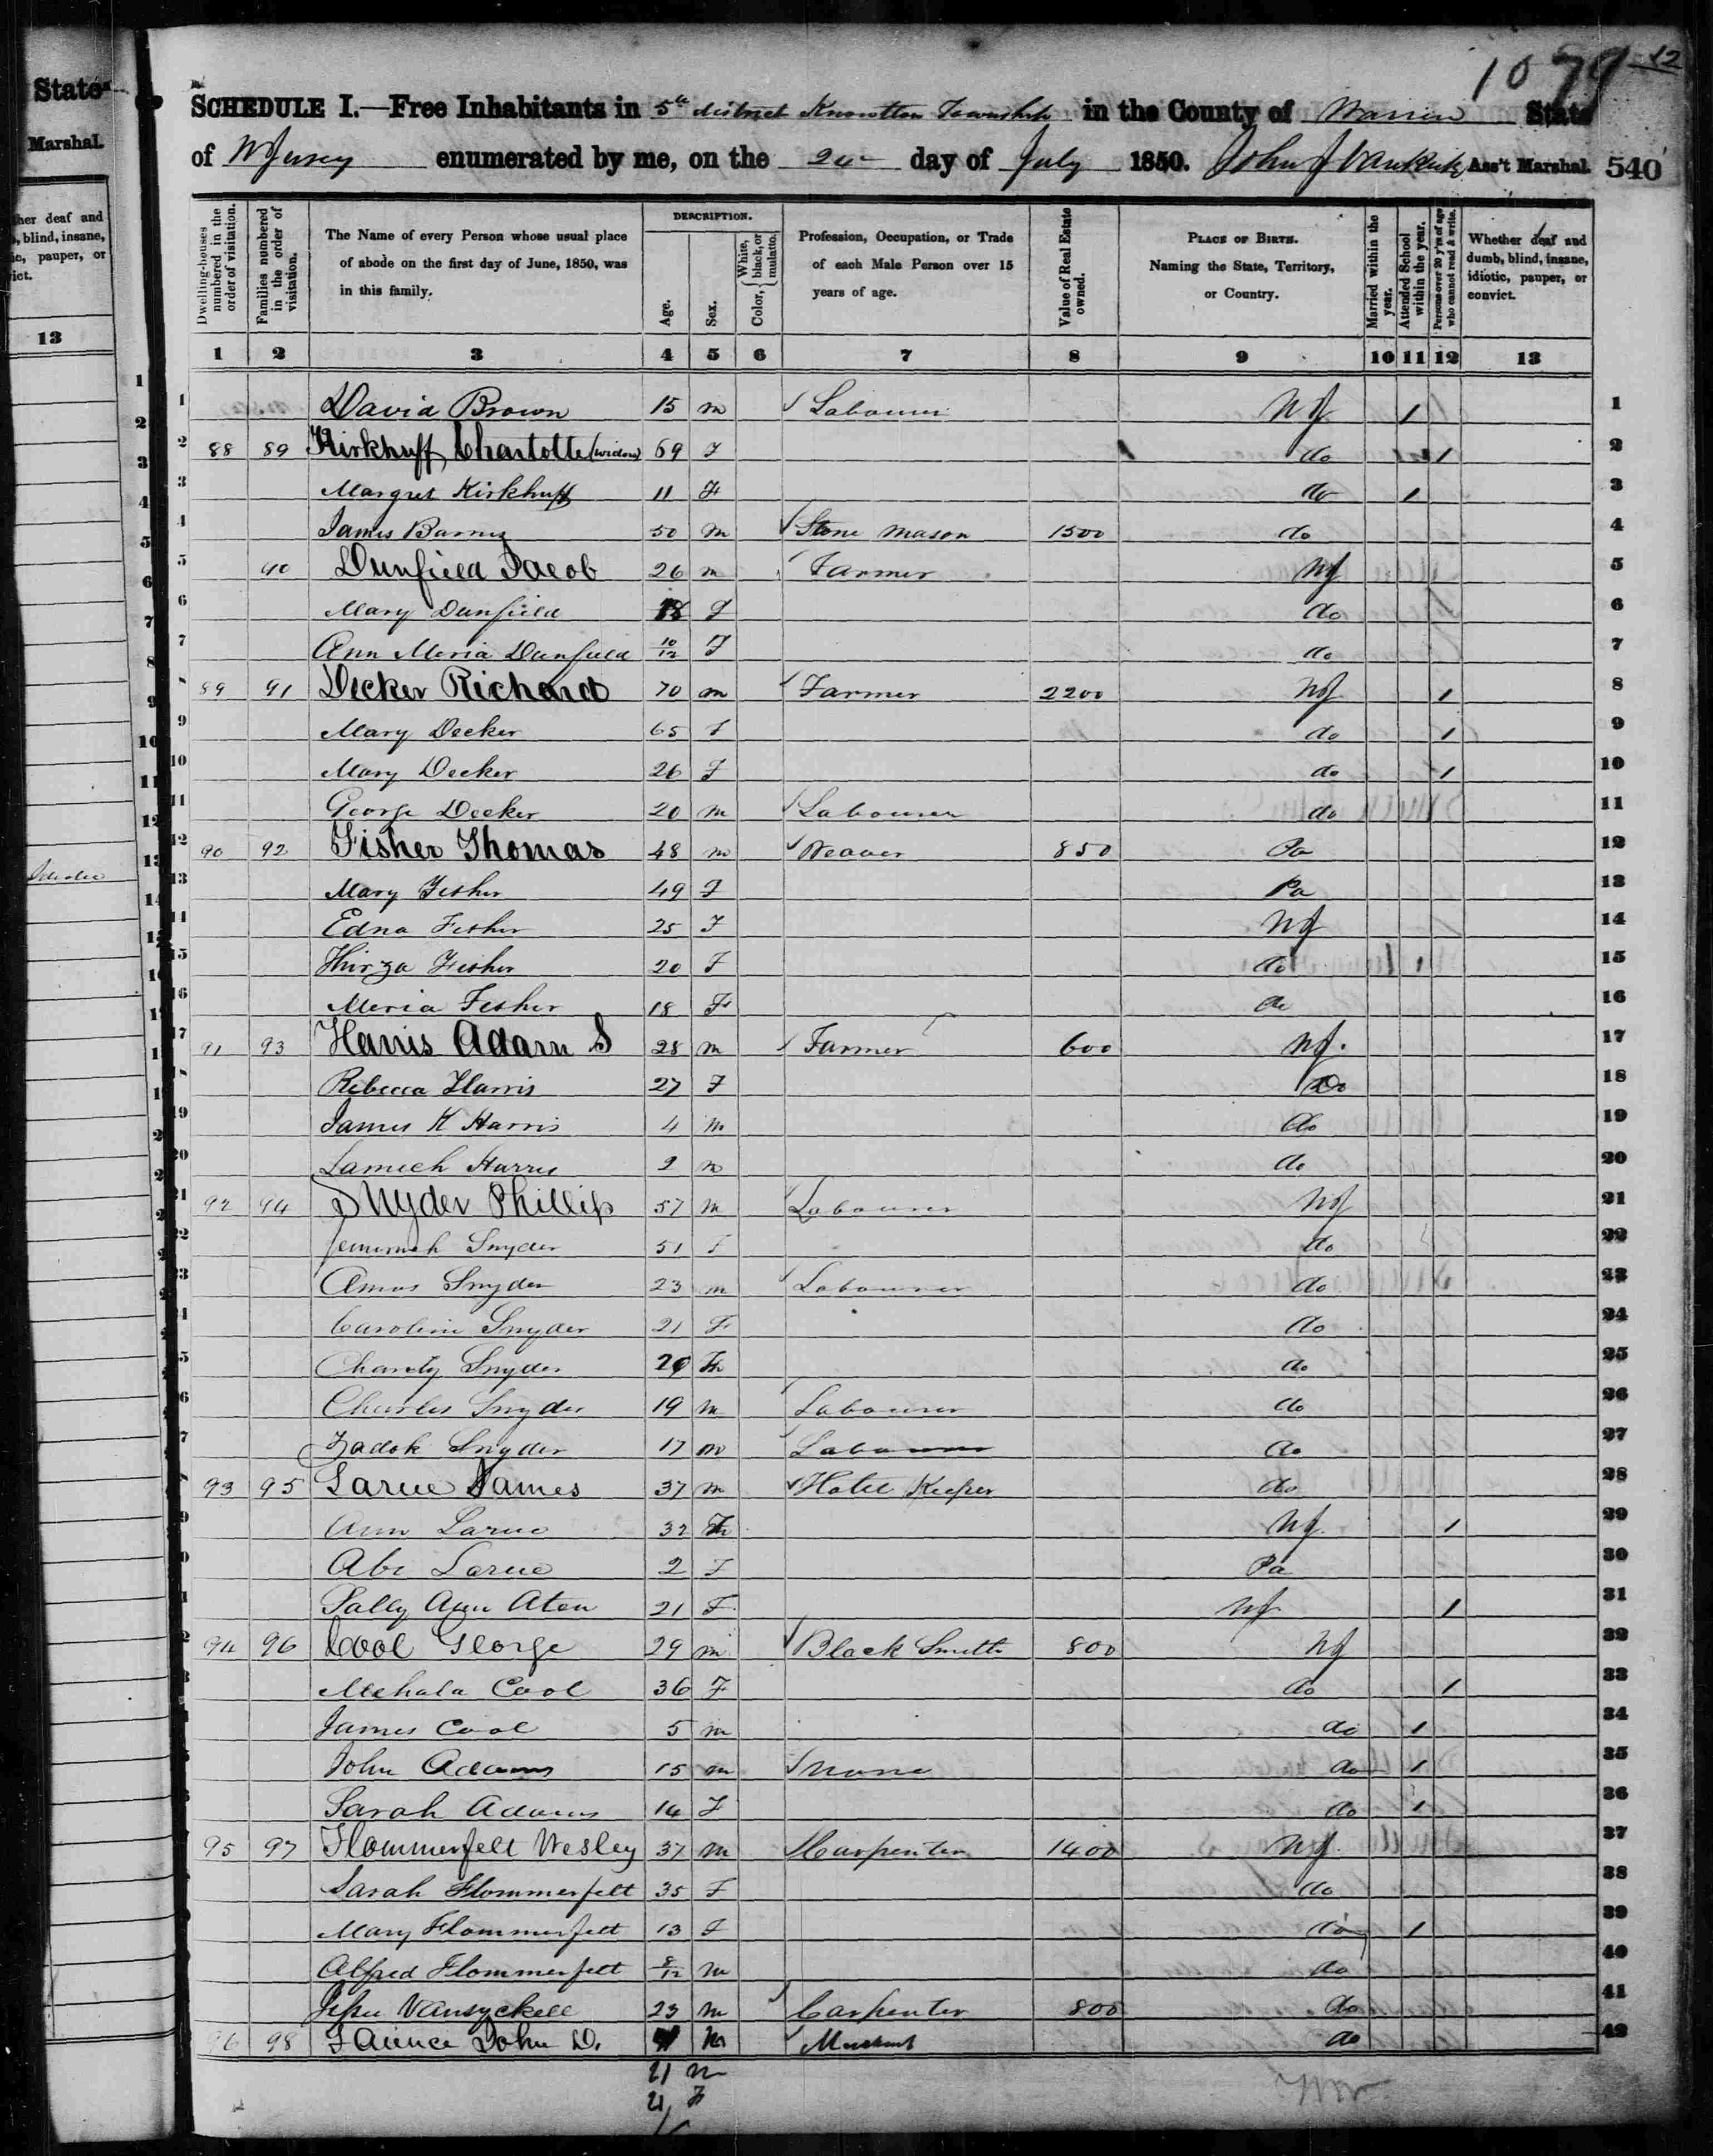 State
Marshal.
her deaf and
, blind, insane,
ic, pauper, or
ict.
13
1079 12
SCHEDULE I.—Free Inhabitants in 5th district Knowlton Township in the County of Warren State
of N Jersey enumerated by me, on the 24 day of July 1850. John J Ass't Marshal. 540
Dwelling-houses numbered in the order of visitation.
Families numbered in the order of visitation.
The Name of every Person whose usual place of abode on the first day of June, 1850, was in this family.
DESCRIPTION.
Age.
Sex.
Color, { White, black, or mulatto.
Profession, Occupation, or Trade of each Male Person over 15 years of age.
Value of Real Estate owned.
PLACE OF BIRTH. Naming the State, Territory, or Country.
Married within the year.
Attended School within the year.
Persons over 20 y'rs of age who cannot read & write.
Whether deaf and dumb, blind, insane, idiotic, pauper, or convict.
1 2 3 4 5 6 7 8 9 10 11 12 13
1 David Brown 15 m Labourer NJ 1 1
2 88 89 Kirkhuff Charlotte (widow) 69 F do 1 2
3 Margret Kirkhuff 11 F do 1 3
4 James Barns 50 m Stone Mason 1500 do 4
5 90 Dunfield Jacob 26 m Farmer NJ 5
6 Mary Dunfield 18 F do 6
7 Ann Meria Dunfield 10/12 F do 7
89 91 Decker Richard 70 m Farmer 2200 NJ 1 8
9 Mary Decker 65 F do 1 9
10 Mary Decker 26 F do 1 10
11 George Decker 20 m Labourer do 11
12 90 92 Fisher Thomas 48 m Weaver 850 Pa 12
13 Mary Fisher 49 F Pa 13
14 Edna Fisher 25 F NJ 14
15 Thirza Fisher 20 F do 1 15
16 Meria Fisher 18 F do 16
17 91 93 Harris Adam S 28 m Farmer 600 NJ. 17
Rebecca Harris 27 F Do 18
19 James K Harris 4 m do 19
20 Lamech Harris 2 m do 20
21 92 94 Snyder Phillip 57 m Labourer NJ 21
22 Jemimah Snyder 51 F do 22
23 Amos Snyder 23 m Labourer do 23
Caroline Snyder 21 F do 24
Charity Snyder 20 F do 25
Charles Snyder 19 m Labourer do 26
Zadok Snyder 17 m Labourer do 27
93 95 Larue James 37 m Hotel Keeper do 28
Ann Larue 32 F NJ 1 29
Abi Larue 2 F Pa 30
Sally Ann Aten 21 F NJ 1 31
94 96 Cool George 29 m Black Smith 800 NJ 32
Mehala Cool 36 F do 1 33
James Cool 5 m do 1 34
John Adams 15 m None do 1 35
Sarah Adams 14 F do 1 36
95 97 Flommerfelt Wesley 37 m Carpenter 1400 NJ. 37
Sarah Flommerfelt 35 F do 38
Mary Flommerfelt 13 F do 1 39
Alfred Flommerfelt 8/12 m do 40
Jesse Vansyckell 23 m Carpenter 800 do 41
96 98 John D. m do 42
21 m
21 F